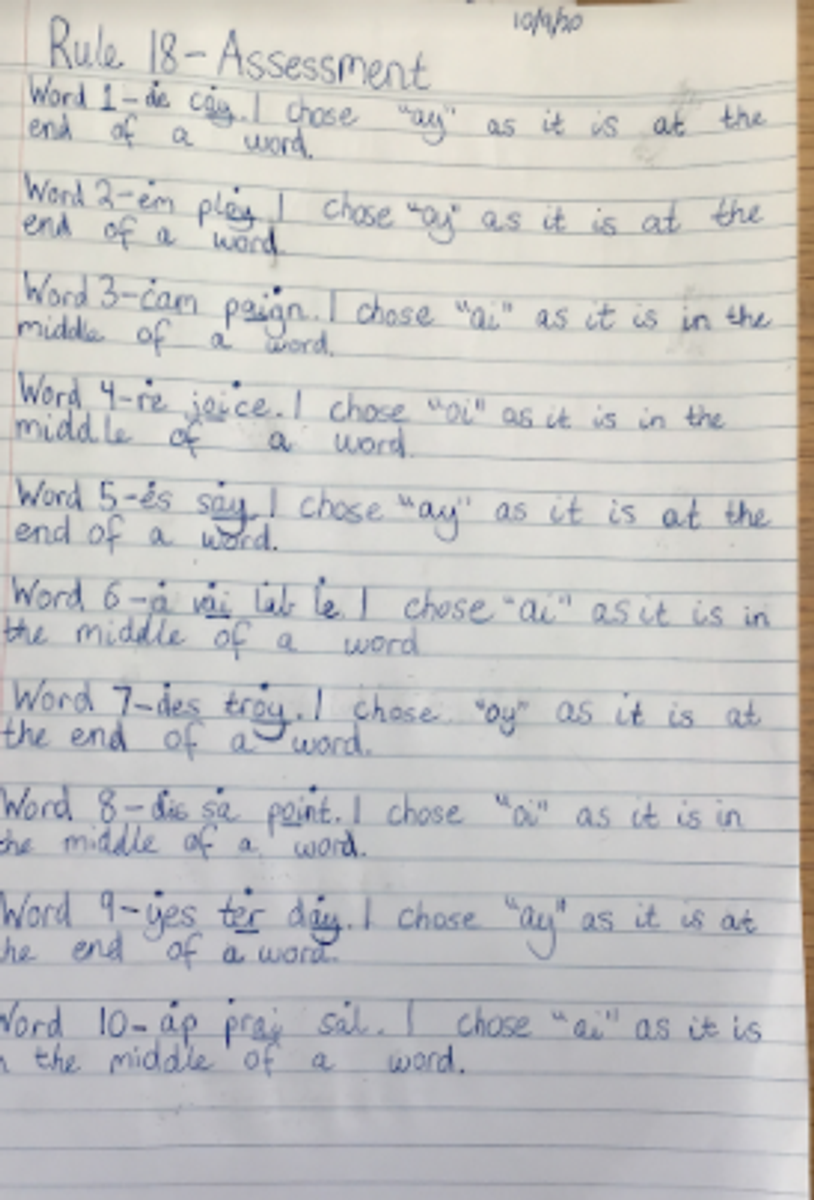 10/9/20
Rule 18-Assessment
Word 1-de cay. I chose "ay" as it is at the
end of a word.
Word 2-em ploy I chose "oy" as it is at the
end of a word.
Word 3-cam paign. I chose "ai" as it is in the
middle of a word.
Word 4-re joice. I chose "oi" as it is in the
middle of a word.
Word 5-es say I chose "ay" as it is at the
end of a word.
Word 6-a vai lab le. I chose "ai" as it is in
the middle of a word
Word 7-des troy. I chose "oy" as it is at
the end of a word.
Word 8-dis sa point. I chose "oi" as it is in
the middle of a word.
Word 9-yes ter day. I chose "ay" as it is at
he end of a word.
Word 10-ap prai sal. I chose "ai" as it is
n the middle of a word.